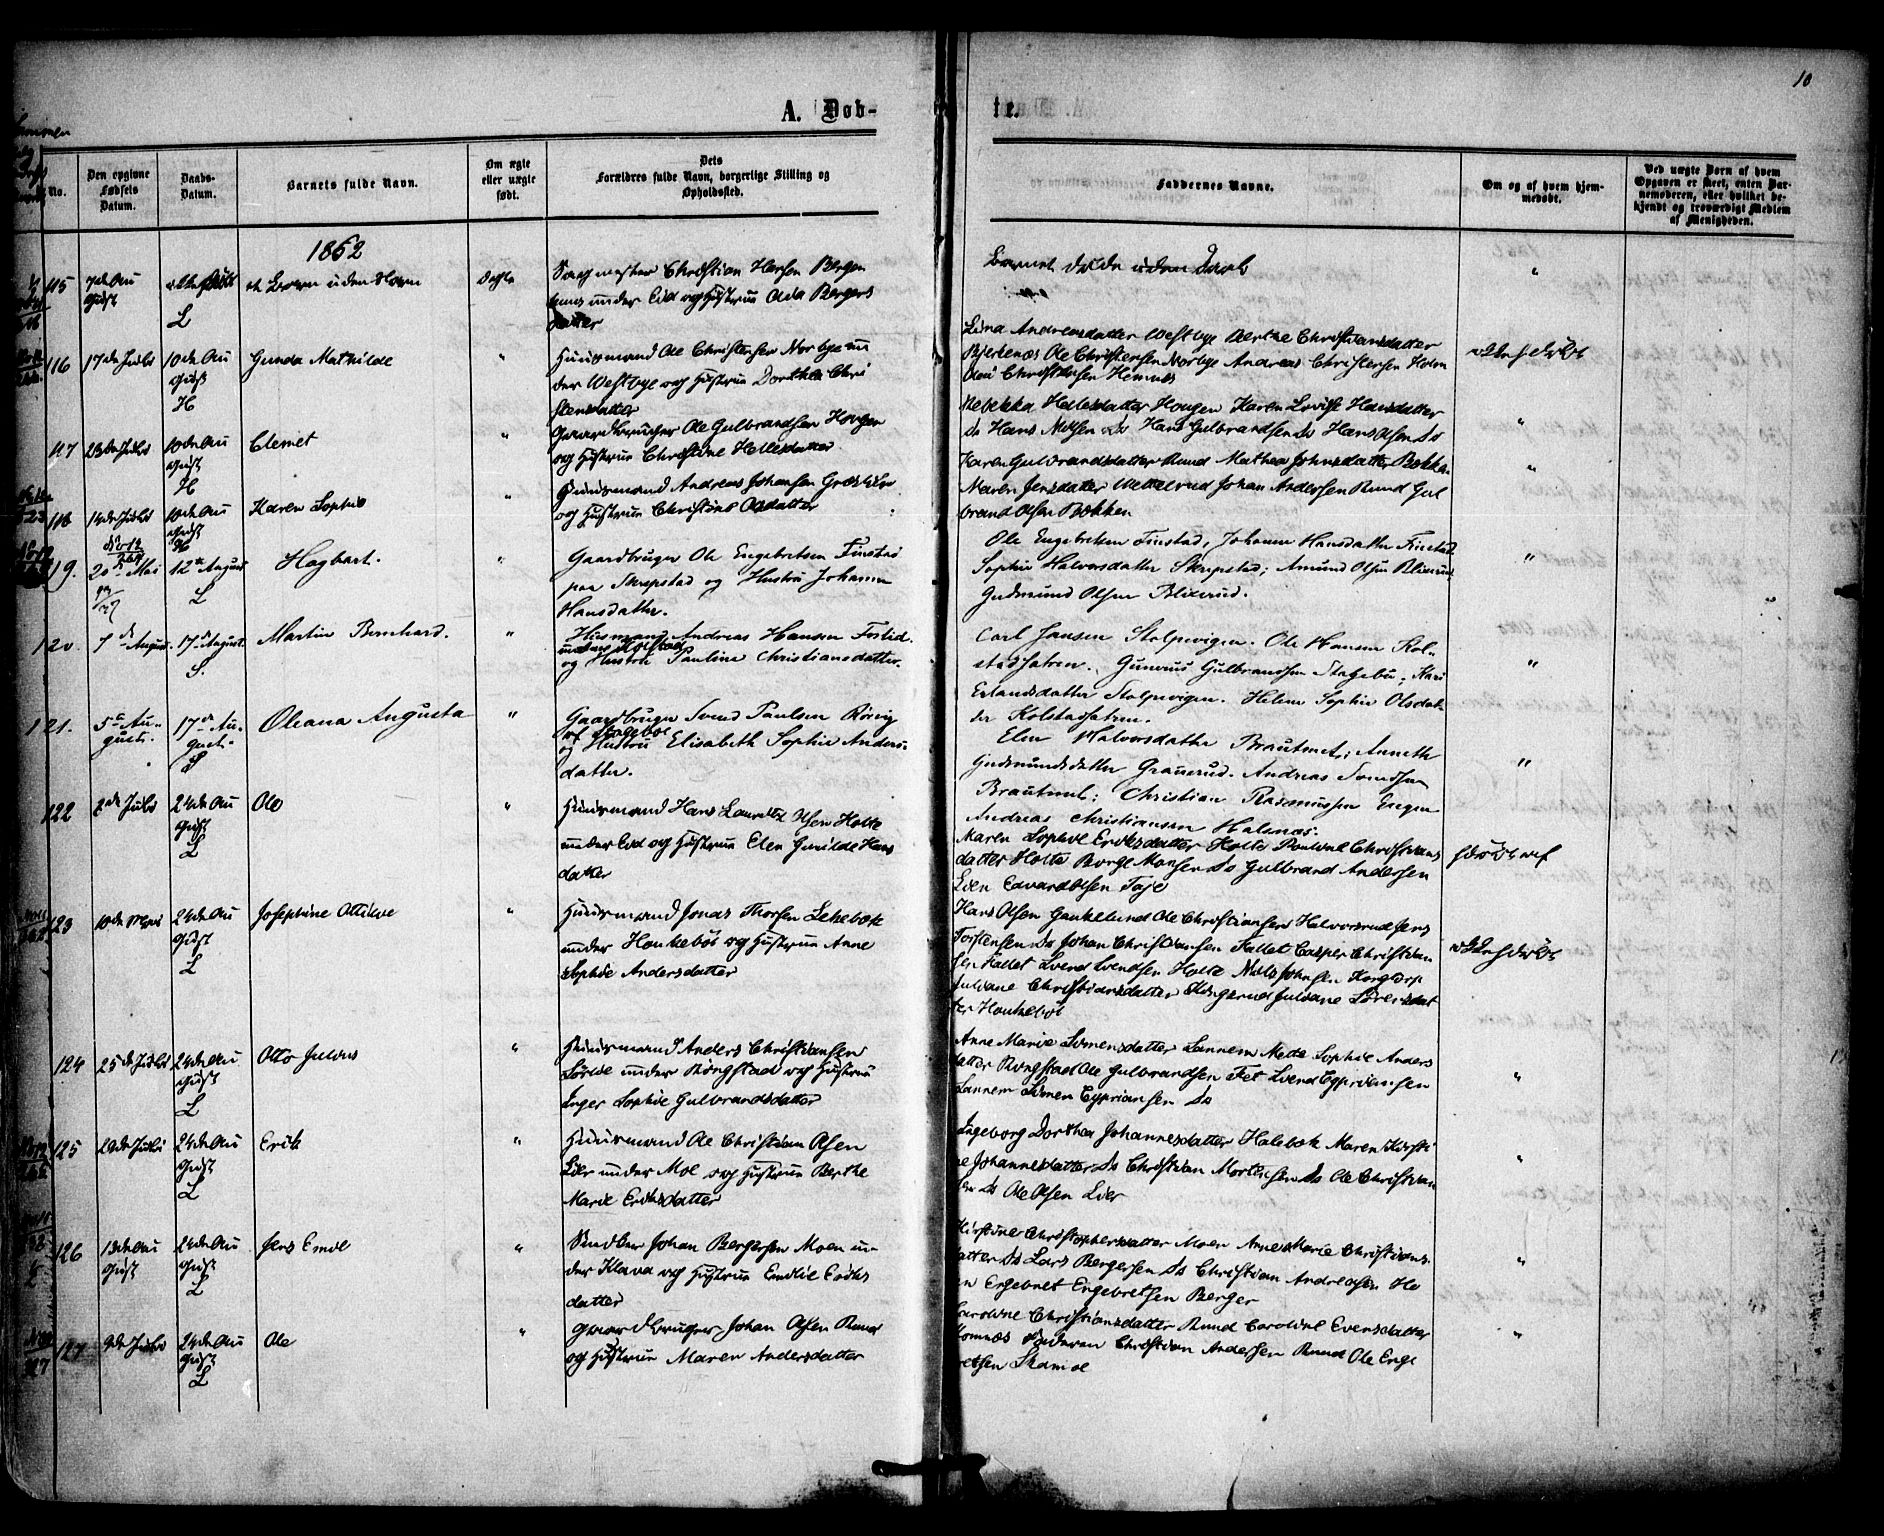 10
A. Døb-
te.
No.
Den opgivne Fødsels Datum.
Daabs-Datum.
Barnets fulde Navn.
Om ægte eller uægte født.
Dets Forældres fulde Navn, borgerlige Stilling og Opholdssted.
Faddernes Navne.
Om og af hvem hjem-medøbt.
Ved uægte Børn af hvem Opgaven er skeet, enten Bar-nemoderen, eller hvilket be-kjendt og troværdigt Medlem af Menigheden.
1862
115 7de Au et Barn uden Navn Ægte Christian Hansen Bergen
gust under Eid og Hustrue Oda Bergers
L datter
Barnet døde uden Daab
116 17de Juli 10de Au Gunda Mathilde " Huusmand Ole Christersen Norbye un
gust der Westbye og Hustrue Dorthea Chri
H stensdatter
Lina Andreasdatter Westbye Berthe Christiansdatter
Bjerkenæs Ole Christersen Norbye Andreas Christersen Holm
Christensen Hemnæs
117 23de Juli 10de Au Clemet " Gaardbruger Ole Gulbrandsen Hougen
gust og Hustrue Christine Hellesdatter
H
Rebekka Hellesdatter Hougen Karen Lovise Hansdatter
Ds Hans Nilsen Ds Hans Gulbrandsen Ds Hans Olsen Ds "
118 14de Juli 10de Au Karen Sophie " Huusmand Andreas Johansen
gust og Hustrue Christine Olsdatter
H
Karen Gulbrandsdatter Ruud Mathea Johnsdatter Bøkken
Maren Jensdatter Mettelrud Johan Andersen Ruud Gul "
brand Olsen Bøkken
119. 20de Mai 12te August Hagbart. " Gaardbruger Ole Engebretsen Finstad
L paa Skrepstad og Hustru Johanne
Hansdatter.
Ole Engebretsen Finstad, Johanne Hansdatter Finstad
Sophie Halvorsdatter Skrepstad; Amund Olsen Blixrud "
Gudmund Olsen Blixrud.
120. 7de August 17de August Martin Bernhard. " Husmand Andreas Hansen
S. under Kolstad
og Hustru Pauline Christiansdatter.
Carl Jansen Stolpevigen. Ole Hansen Kol-
stadsfatren. Gunerius Gulbrandsen Stagebu; Kari "
Erlandsdatter Stolpevigen. Helene Sophie Olsdat-
ter Kolstadfatren.
121. 5te Au- 17de Au- Oleana Augusta " Gaardbruger Svend Paulsen Rørvig
gust. gust.
S og Hustru Elisabeth Sophie Anders-
datter.
Elen Halvorsdatter Brautmet; Anneth
Gudmundsdatter Granerud. Andreas Svendsen "
Brautmet; Christian Rasmussen Engen
Andreas Christiansen Halsnæs.
122 2de Juli 24de Au Ole " Huusmand Hans Lauritz Olsen Holte
gust under Eid og Hustrue Elen Gunilde Hans
L datter
Maren Sophie Eriksdatter Holte Pauline Christians
datter Holte Børge Monsen Ds Gulbrand Andersen
Lien Edvard Olsen Taje
123 10de Mai 24de Au Josephine Ottilie " Huusmand Jonas Thorsen Lekebøk
gust under Honkebøl og Hustrue Anne
L Sophie Andersdatter
Hans Olsen Gaukelund Ole Christiansen Halvorsrud Jens
Torstensen Ds Johan Christiansen Fallet Casper Christian
sen Fallet Svend Svendsen Holte Niels Johnsen
Juliane Christiansdatter Juliane Sørensdat
ter Honkebøl
124 25de Juli 24de Au Otto Julius " Huusmand Anders Christiansen
gust under Ringstad og Hustrue
L Inger Sophie Gulbrandsdatter
Anne Marie Simensdatter Sannem Mette Sophie Anders
datter Ringstad Ole Gulbrandsen Fet Svend Cyprian sen
Sannem Simen Cypriansen Ds "
125 20de Juli 24de Au Erik " Huusmand Ole Christian Olsen
gust Lier under Moe og Hustrue Berthe
L Marie Eriksdatter
Ingeborg Dorthea Johannesdatter Halebøk Maren Kirsti
ne Johannesdatter Ds Christian Mortensen Ds Ole Christian "
sen Ds Ole Olsen Lier
126 13de Au 24de Au Jens Emil " Johan Bergersen Moen un-
gust gust der Klava og Hustrue Emilie Eriks
L datter
Kirstine Christophersdatter Moen Anne Marie Christians
datter Ds Lars Bergersen Ds Christian Andreasen He "
Engebret Engebretsen Berger
127 9de Juli 24de Au Ole " Gaardbruger Johan Olsen Ruud
gust og Hustrue Maren Andersdatter
L
Caroline Christiansdatter Ruud Caroline Evensdatter
Christian Andersen Ruud Ole Enge "
bretsen